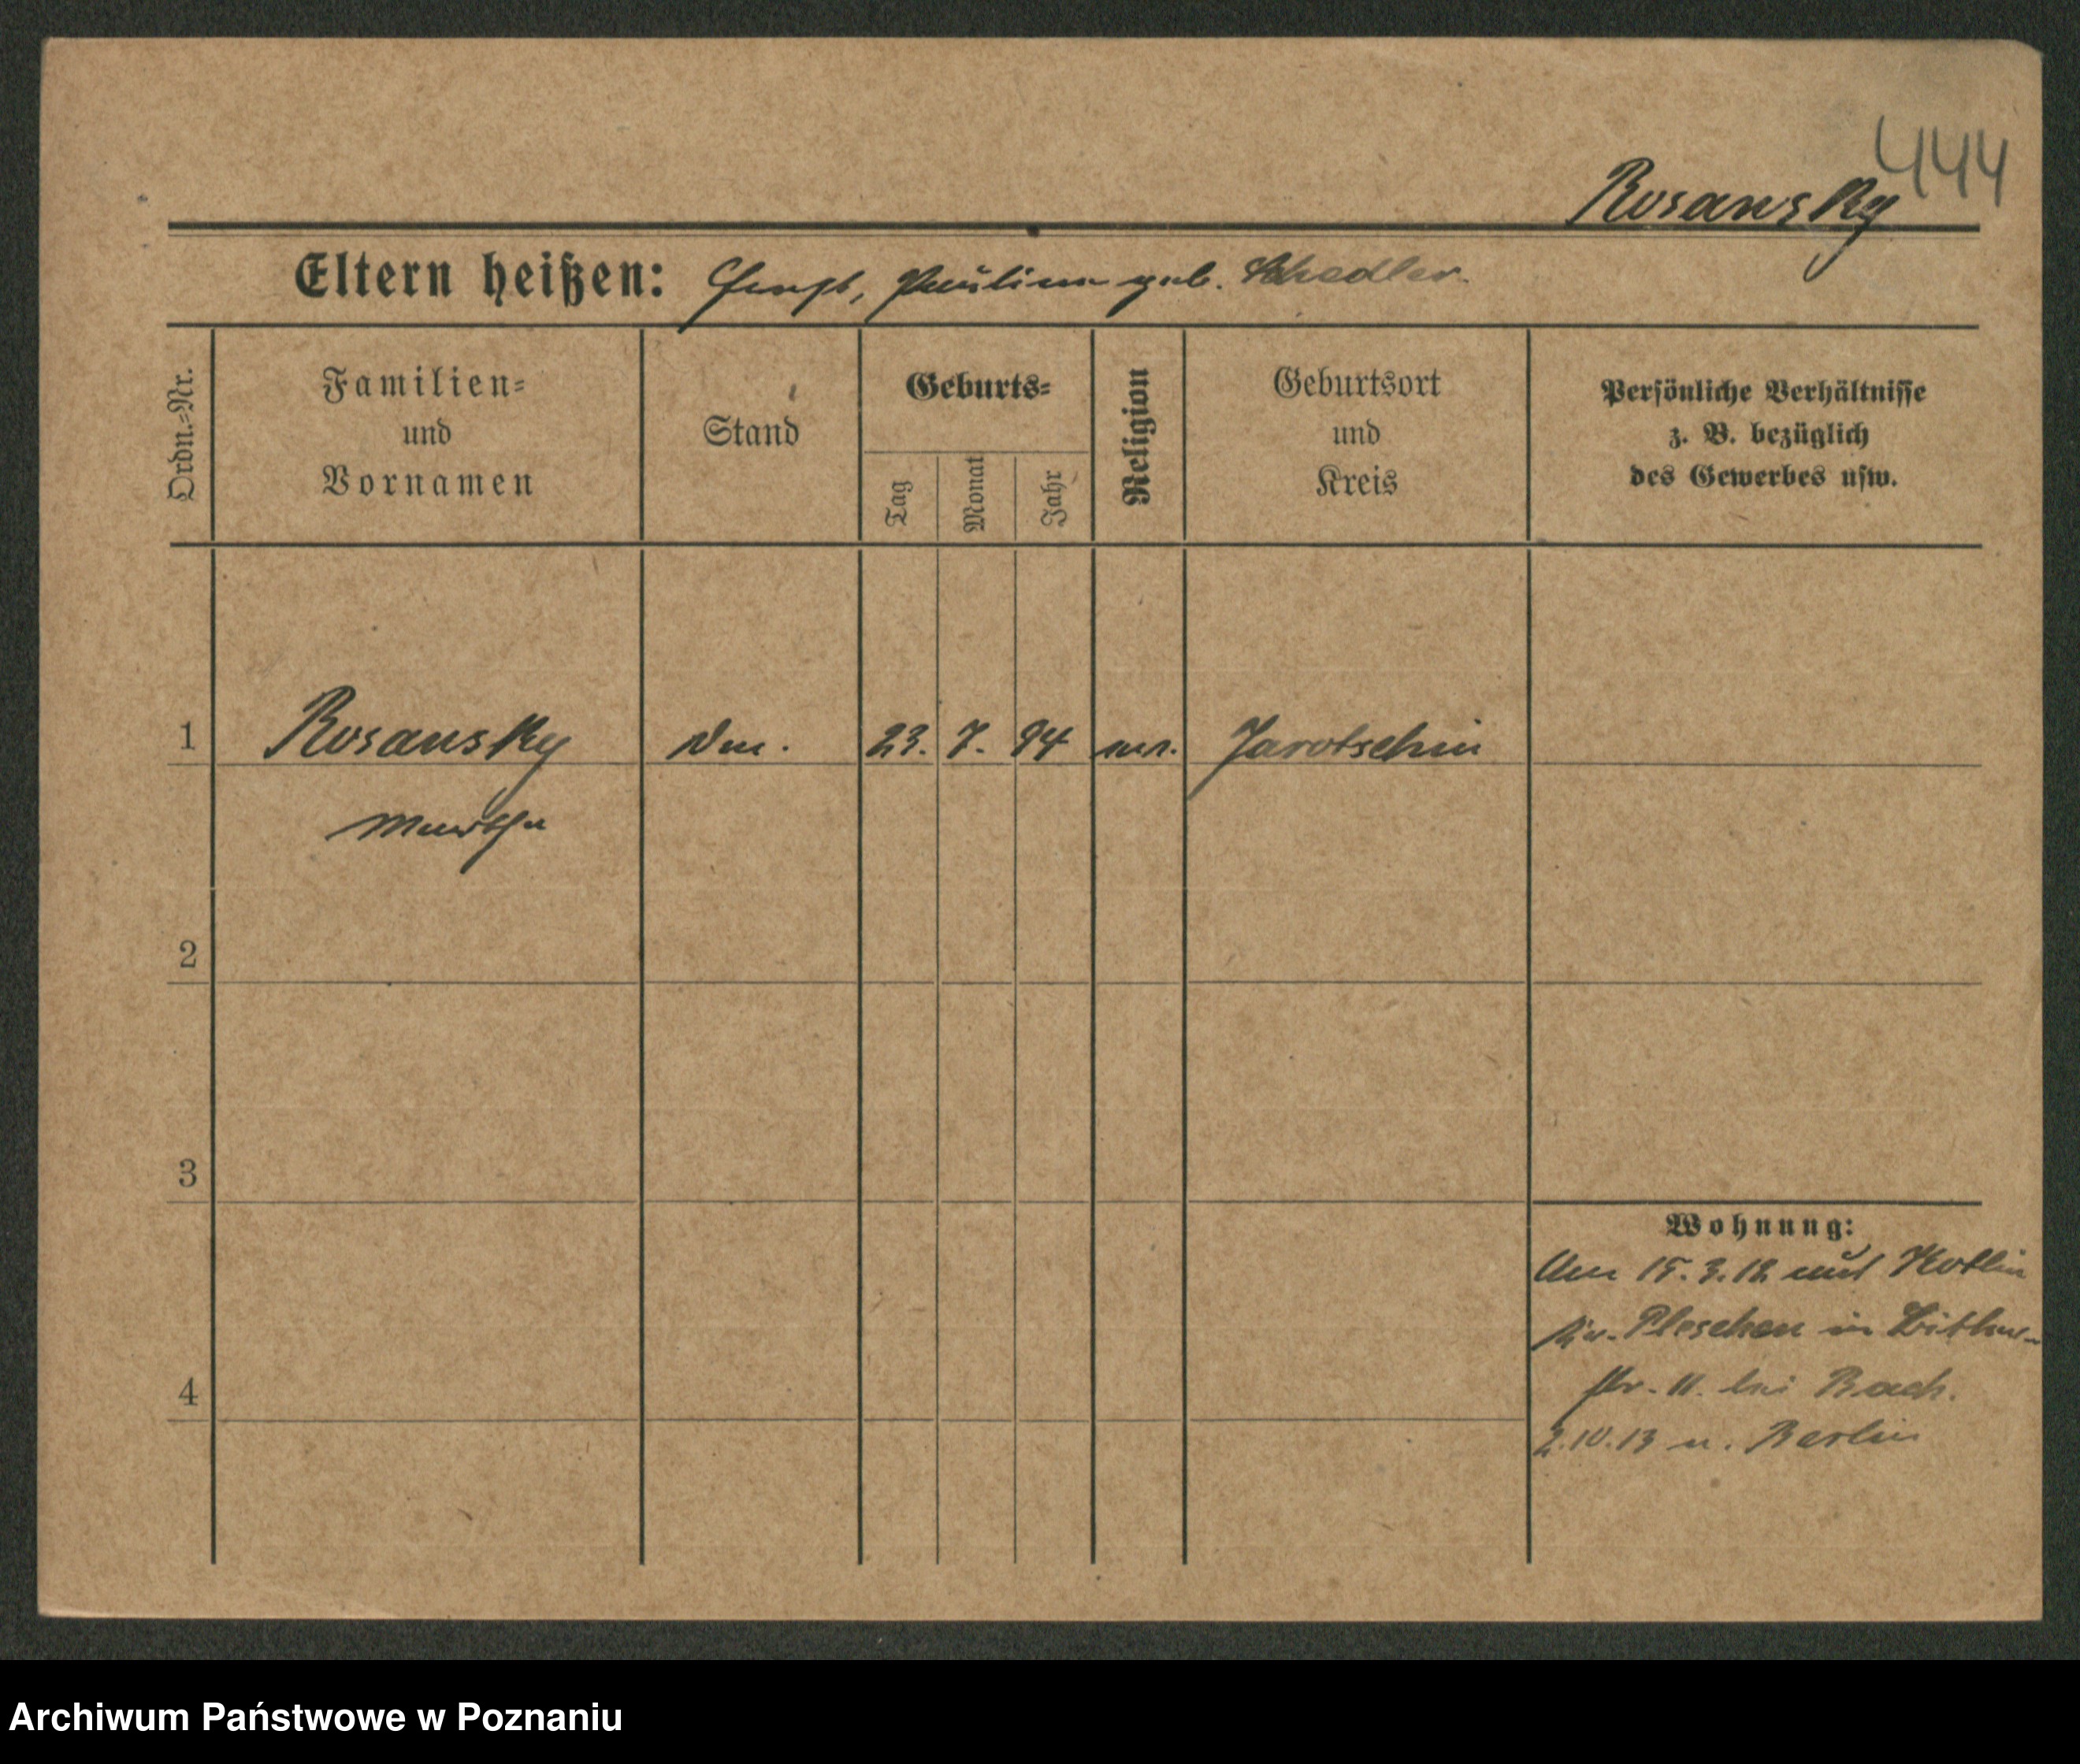 444
Rosansky
Eltern heißen: Pauline geb. Schedler.
Ordn.-Nr.
Familien-
und
Vornamen
Stand
Geburts-
Tag
Monat
Jahr
Religion
Geburtsort
und
Kreis
Persönliche Verhältnisse
z. B. bezüglich
des Gewerbes usw.
1 Rosansky 23. 7. 94 Jarotschin
Martha
2
3
4
Wohnung:
Am 15.3.12 aus Kotlin
Kr. Pleschen in
str. 11. bei Bach.
2.10.13 n. Berlin
Archiwum Państwowe w Poznaniu